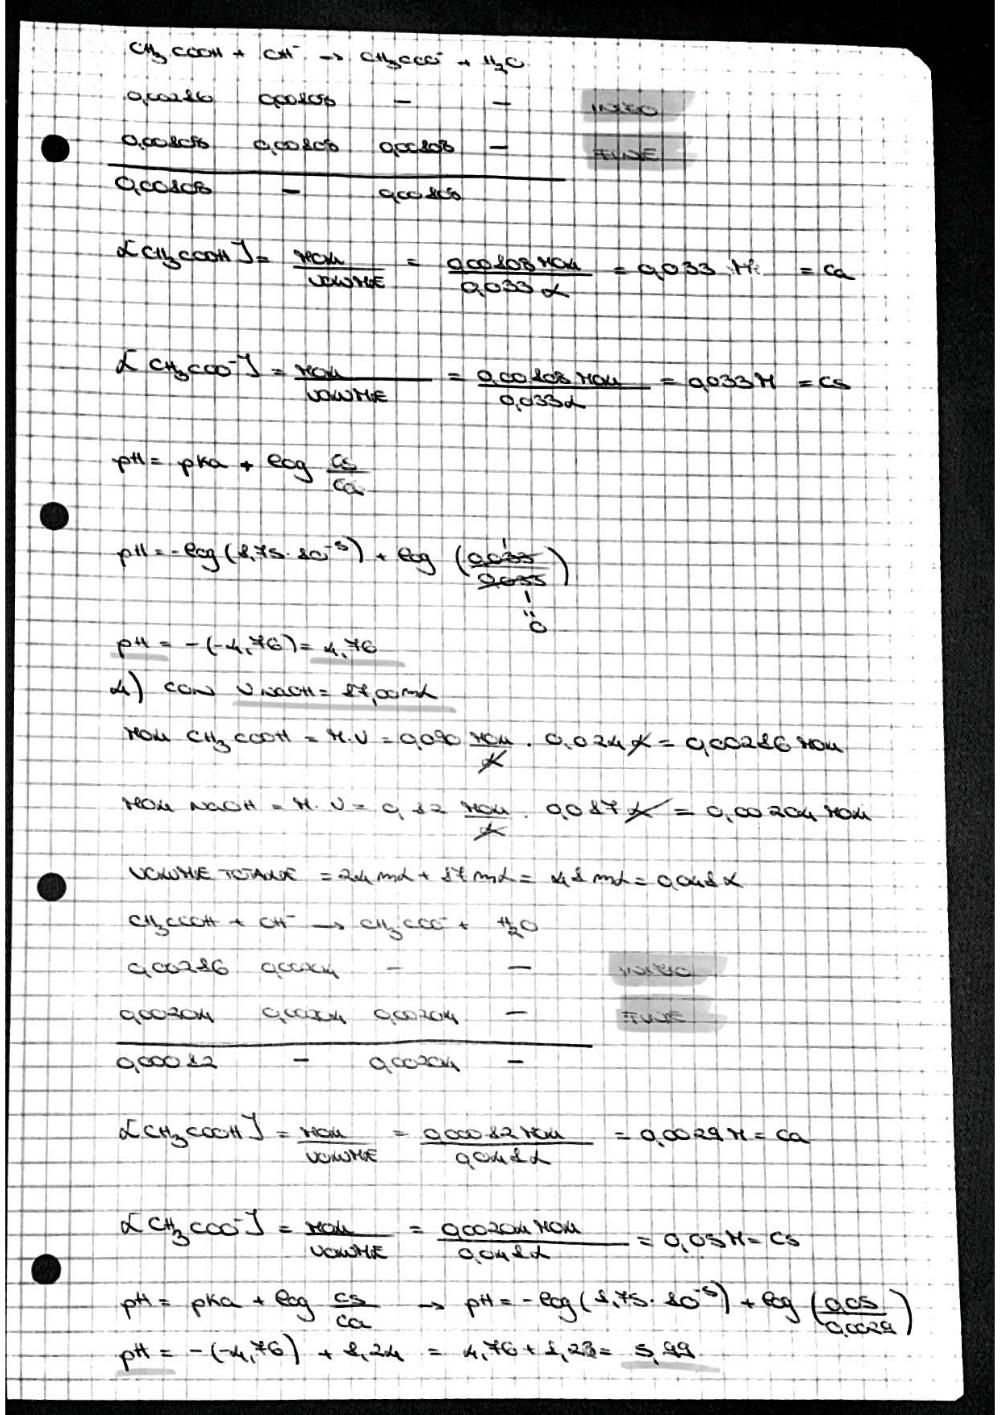 CH₃COOH + OH⁻ → CH₃COO⁻ + H₂O
0,00216 0,00108 — — INIZIO
0,00108 0,00108 0,00108 — FINE
0,00108 — 0,00108
[CH₃COOH] = MOLI/VOLUME = 0,00108 MOLI/0,033 L = 0,033 M = Ca
[CH₃COO⁻] = MOLI/VOLUME = 0,00108 MOLI/0,033 L = 0,033 M = Cs
pH = pKa + log Cs/Ca
pH = -log (1,75·10⁻⁵) + log (0,033/0,033)
1
1
"
0
pH = -(-4,76) = 4,76
4) CON V NaOH = 17,00 mL
MOLI CH₃COOH = M·V = 0,090 MOLI/L · 0,024 L = 0,00216 MOLI
MOLI NaOH = M·V = 0,12 MOLI/L · 0,017 L = 0,00204 MOLI
VOLUME TOTALE = 24 mL + 17 mL = 41 mL = 0,041 L
CH₃COOH + OH⁻ → CH₃COO⁻ + H₂O
0,00216 0,00204 — — INIZIO
0,00204 0,00204 0,00204 — FINE
0,00012 — 0,00204 —
[CH₃COOH] = MOLI/VOLUME = 0,00012 MOLI/0,041 L = 0,0029 M = Ca
[CH₃COO⁻] = MOLI/VOLUME = 0,00204 MOLI/0,041 L = 0,05 M = Cs
pH = pKa + log Cs/Ca → pH = -log (1,75·10⁻⁵) + log (0,05/0,0029)
pH = -(-4,76) + 1,24 = 4,76 + 1,23 = 5,99